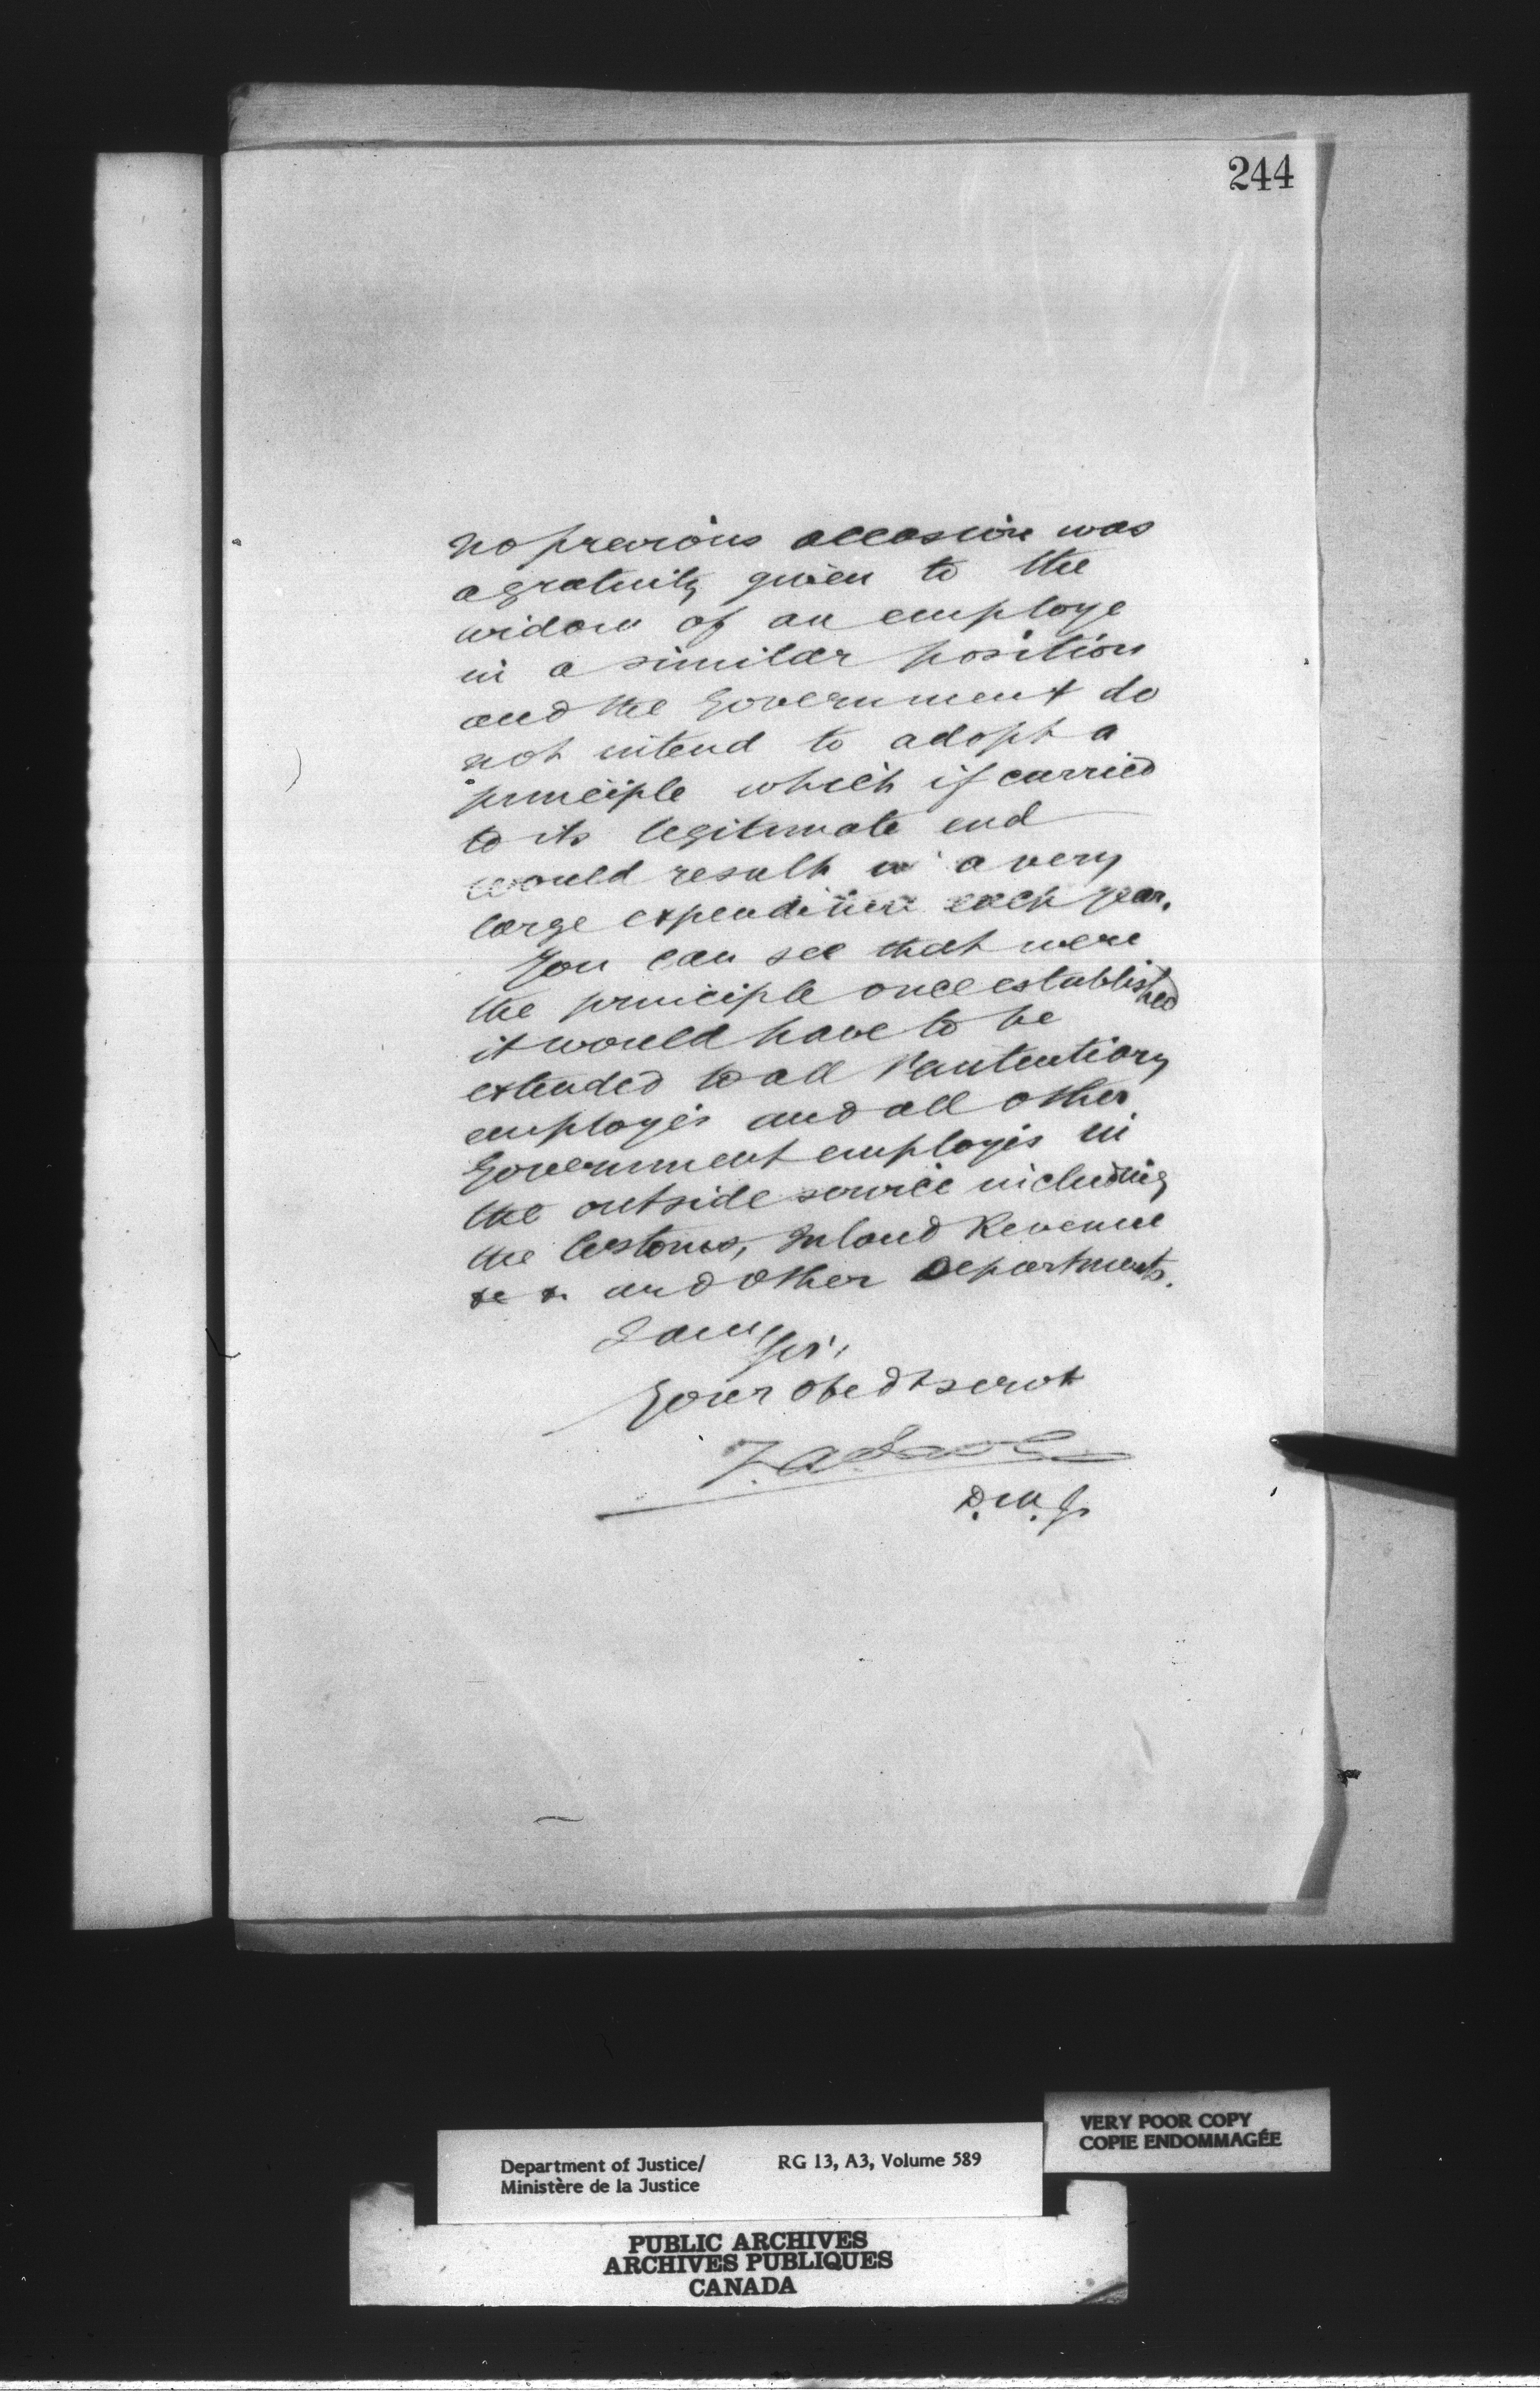 244
no previous occasion was
a gratuity given to the
widow of an employe
in a similar position
and the Government do
not intend to adopt a
principle which if carried
to its legitimate end
would result in a very
large expenditure each year.
You can see that were
the principle once established
it would have to be
extended to all Penitentiary
employés and all other
Government employés in
the outside service including
the Customs, Inland Revenue
&c &c and other Departments.
I am Sir,
Your obedt servt
D.M.J.
VERY POOR COPY
COPIE ENDOMMAGÉE
Department of Justice/ RG 13, A3, Volume 589
Ministère de la Justice
PUBLIC ARCHIVES
ARCHIVES PUBLIQUES
CANADA